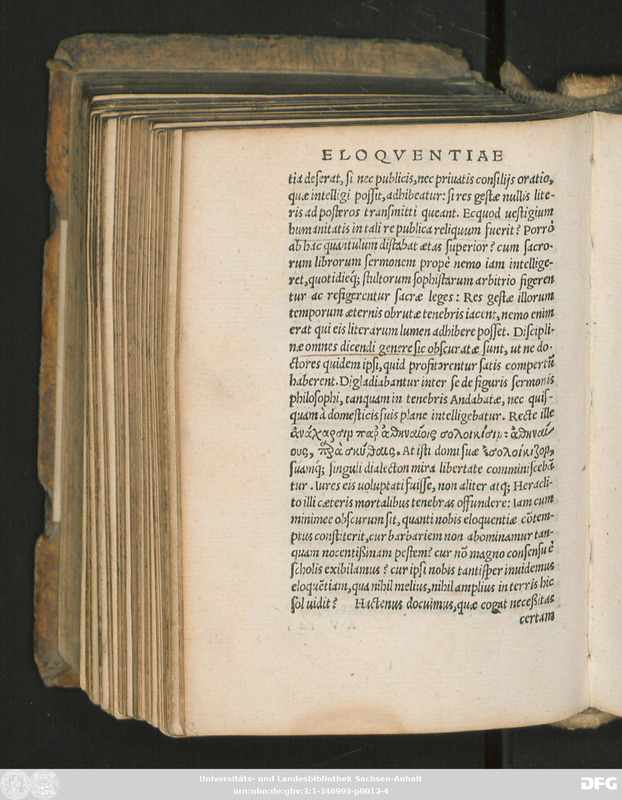 ELOQVENTIAE
tia deserat, si nec publicis, nec priuatis consilijs oratio,
quæ intelligi possit, adhibeatur: si res gestæ nullis lite-
ris ad posteros transmitti queant. Ecquod uestigium
humanitatis in tali re publica reliquum fuerit? Porrò
ab hac quantulum distabat ætas superior? cum sacro-
rum librorum sermonem propè nemo iam intellige-
ret, quotidieq́; stultorum sophistarum arbitrio figeren
tur ac refigerentur sacræ leges: Res gestæ illorum
temporum æternis obrutæ tenebris iacent, nemo enim
erat qui eis literarum lumen adhibere posset. Discipli-
næ omnes dicendi genere sic obscuratæ sunt, ut ne do-
ctores quidem ipsi, quid profiterentur satis compertũ
haberent. Digladiabantur inter se de figuris sermonis
philosophi, tanquam in tenebris Andabatæ, nec quis-
quam à domesticis suis plane intelligebatur. Recte ille
ἀνάχαρσιμ παρ᾽ ἀθηναίοις σολοικίζιμ: ἀθηναί
ους, παρὰ σκύθαις. At isti domi suæ ἐσολοίκιζομ,
suamq́; singuli dialecton mira libertate comminiscebã
tur. Iures eis uoluptati fuisse, non aliter atq; Heracli-
to illi cæteris mortalibus tenebras offundere: Iam cum
minimee obscurum sit, quanti nobis eloquentiæ cõtem-
ptus constiterit, cur barbariem non abominamur tan-
quam nocentißimam pestem? cur nõ magno consensu è
scholis exibilamus? cur ipsi nobis tantisper inuidemus
eloquẽtiam, qua nihil melius, nihil amplius in terris hic
sol uidit? Hactenus docuimus, quæ cogat neceßitas
certam
Universitäts- und Landesbibliothek Sachsen-Anhalt
urn:nbn:de:gbv:3:1-346993-p0012-4
DFG